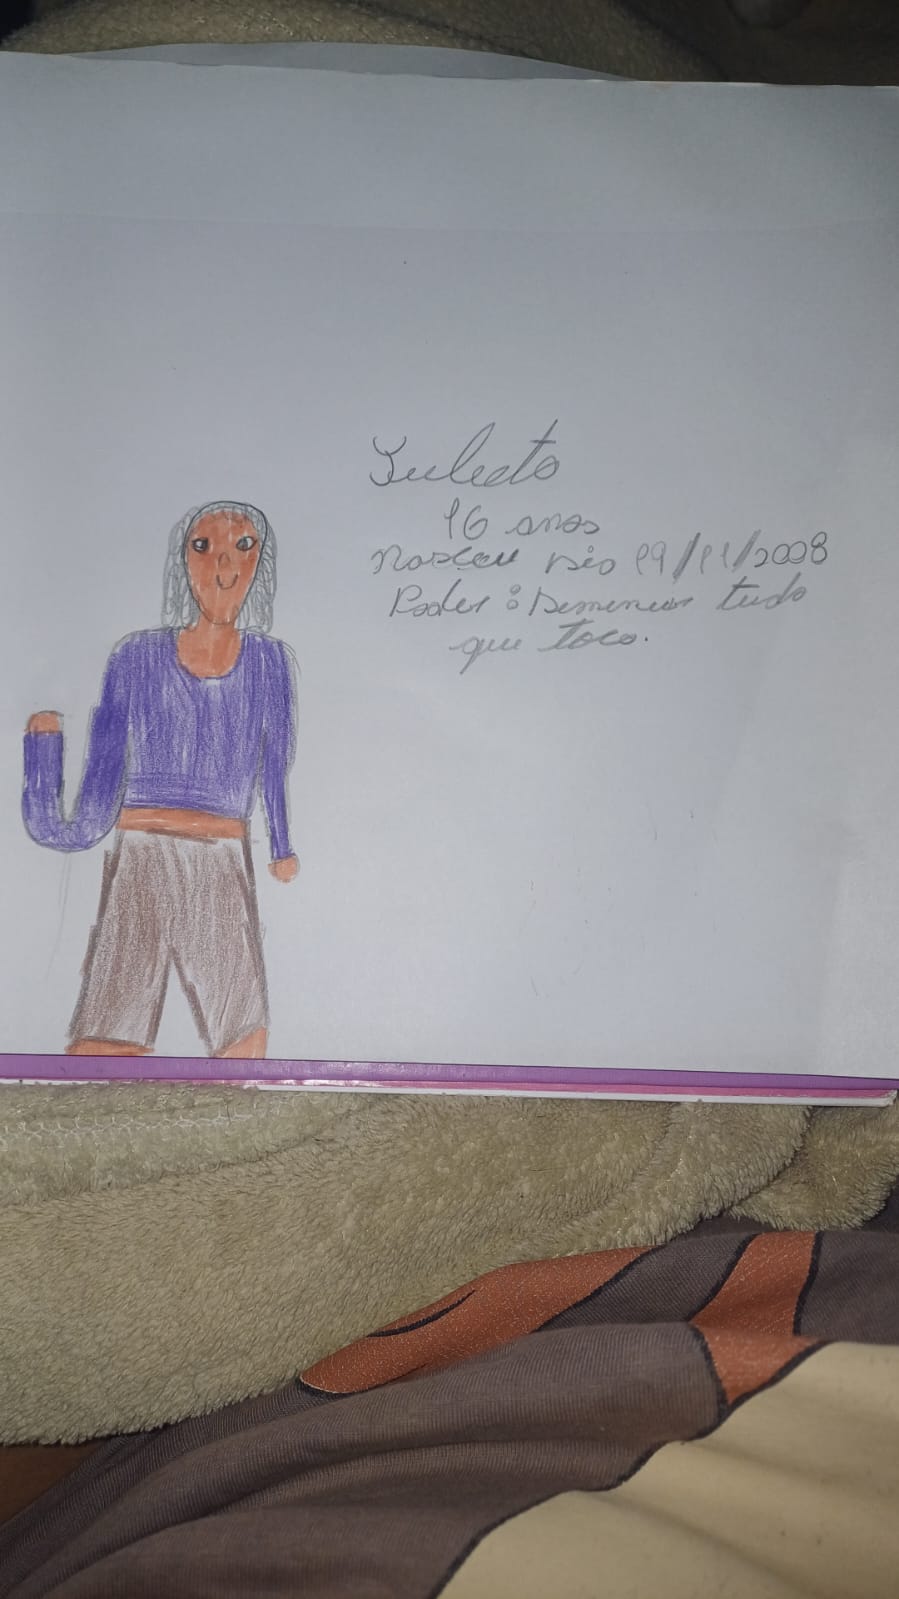 Julieta
16 anos
Nasceu dia 19/11/2008
Poder: Demenciar tudo
que toca.